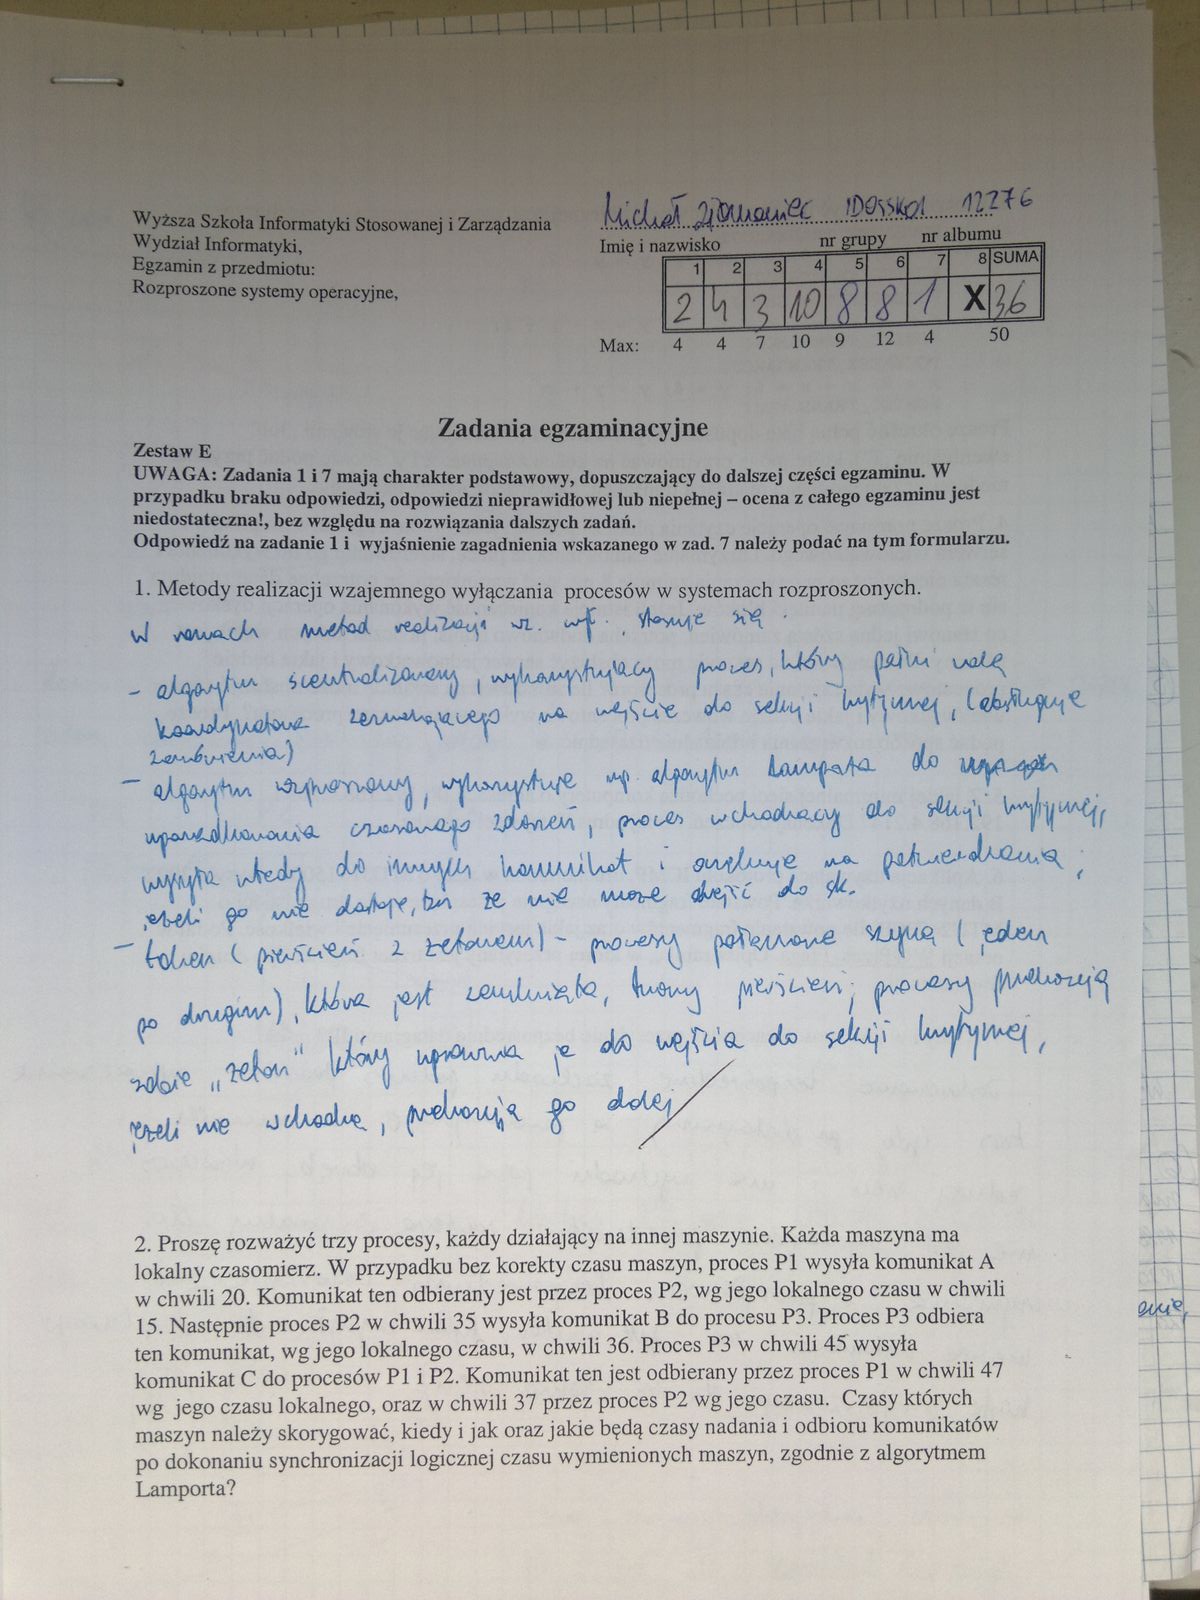 Wyższa Szkoła Informatyki Stosowanej i Zarządzania
Wydział Informatyki,
Egzamin z przedmiotu:
Rozproszone systemy operacyjne,
Michał 12276
Imię i nazwisko nr grupy nr albumu
1 2 3 4 5 6 7 8 SUMA
2 4 3 10 8 8 1 X 36
Max: 4 4 7 10 9 12 4 50
Zadania egzaminacyjne
Zestaw E
UWAGA: Zadania 1 i 7 mają charakter podstawowy, dopuszczający do dalszej części egzaminu. W
przypadku braku odpowiedzi, odpowiedzi nieprawidłowej lub niepełnej – ocena z całego egzaminu jest
niedostateczna!, bez względu na rozwiązania dalszych zadań.
Odpowiedź na zadanie 1 i wyjaśnienie zagadnienia wskazanego w zad. 7 należy podać na tym formularzu.
1. Metody realizacji wzajemnego wyłączania procesów w systemach rozproszonych.
W ramach metod realizacji wz. wył. stosuje się
- algorytm scentralizowany, wykorzystujący proces, który pełni rolę
koordynatora zezwalającego na wejście do sekcji krytycznej, (obsługuje
zamówienia)
- algorytm rozproszony, wykorzystuje np. algorytm Lamporta do
uporządkowania czasowego zdarzeń, proces wchodzący do sekcji krytycznej,
wysyła wtedy do innych komunikat i oczekuje na potwierdzenia,
jeżeli go nie dostaje, tzn że nie może wejść do sk.
- token (pierścień z żetonem) - procesy połączone szyną (jeden
po drugim), która jest zamknięta, tworzy pierścień; procesy przekazują
sobie "żeton" który uprawnia je do wejścia do sekcji krytycznej,
jeżeli nie wchodzą, przekazują go dalej
2. Proszę rozważyć trzy procesy, każdy działający na innej maszynie. Każda maszyna ma
lokalny czasomierz. W przypadku bez korekty czasu maszyn, proces P1 wysyła komunikat A
w chwili 20. Komunikat ten odbierany jest przez proces P2, wg jego lokalnego czasu w chwili
15. Następnie proces P2 w chwili 35 wysyła komunikat B do procesu P3. Proces P3 odbiera
ten komunikat, wg jego lokalnego czasu, w chwili 36. Proces P3 w chwili 45 wysyła
komunikat C do procesów P1 i P2. Komunikat ten jest odbierany przez proces P1 w chwili 47
wg jego czasu lokalnego, oraz w chwili 37 przez proces P2 wg jego czasu. Czasy których
maszyn należy skorygować, kiedy i jak oraz jakie będą czasy nadania i odbioru komunikatów
po dokonaniu synchronizacji logicznej czasu wymienionych maszyn, zgodnie z algorytmem
Lamporta?